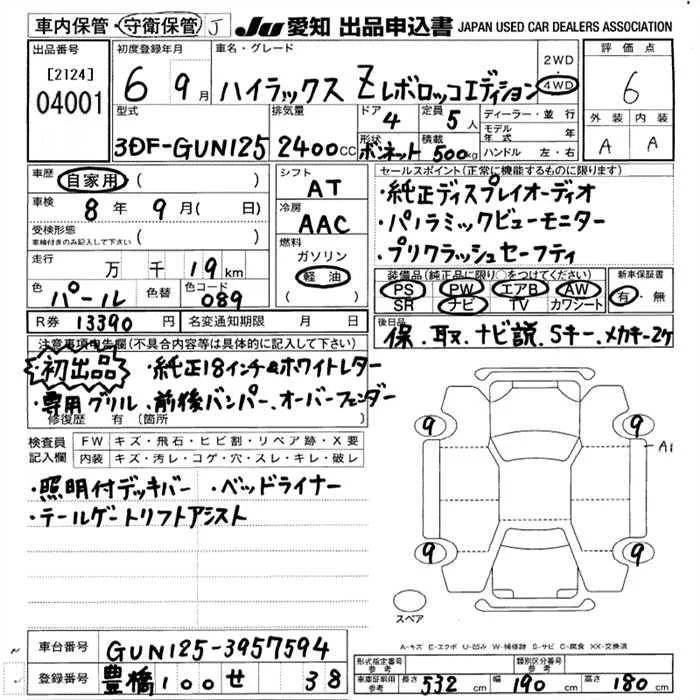 車内保管・守衛保管 J JU 愛知 出品申込書 JAPAN USED CAR DEALERS ASSOCIATION
出品番号 初度登録年月 車名・グレード 2WD 評価点
[2124] 6 9月 ハイラックス Z レボロッコエディション 4WD 6
04001 型式 排気量 ドア 定員 ディーラー・並行
4 5人 モデル年式 年 外装 内装
3DF-GUN125 2400cc 形状 ボンネット 積載 500kg ハンドル 左・右 A A
車歴 自家用 ( ) シフト AT セールスポイント(正常に機能するものに限ります)
車検 8年9月( 日) 冷房 AAC ・純正ディスプレイオーディオ
受検形態 車検付きのみ記入して下さい ( ) 燃料 ・パノラミックビューモニター
走行 万 千 19km ガソリン ・プリクラッシュセーフティ
軽油 装備品(純正品に限り○をつけてください) 新車保証書
色 パール 色替 色コード 089 ( ) PS PW エアB AW 有・無
SR ナビ TV カワシート
R券 13390円 名変通知期限 月 日 後日品
注意事項申告欄(不具合内容等は具体的に記入して下さい) 保.取.ナビ説.Sキー.メカキー2ケ
・初出品 ・純正18インチ&ホワイトレター
・専用グリル.前後バンパー.オーバーフェンダー
修復歴 有 (箇所
検査員記入欄 FW キズ・飛石・ヒビ割・リペア跡・X要
内装 キズ・汚レ・コゲ・穴・スレ・キレ・破レ
・照明付デッキバー ・ベッドライナー
・テールゲートリフトアシスト
9 9 A1
9 9
スペア
A-キズ E-エクボ U-凹み W-補修跡 S-サビ C-腐食 XX-交換済
車台番号 GUN125-3957594
登録番号 豊橋 100 せ 38
形式指定番号 参考 類別区分番号 参考
車庫証明用 参考 長さ 532cm 幅 190cm 高さ 180cm